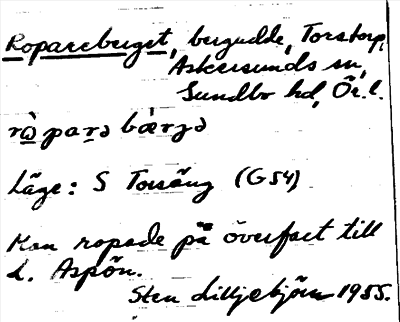 Ropareberget, bergudde, Torstorp,
Askersunds sn,
Sundbo hd, Ör. l.
rò̱parə bärjə
Läge: S Torsäng (G54)
Man ropade på överfart till
L. Aspön.
Sten Lilljebjörn 1955.